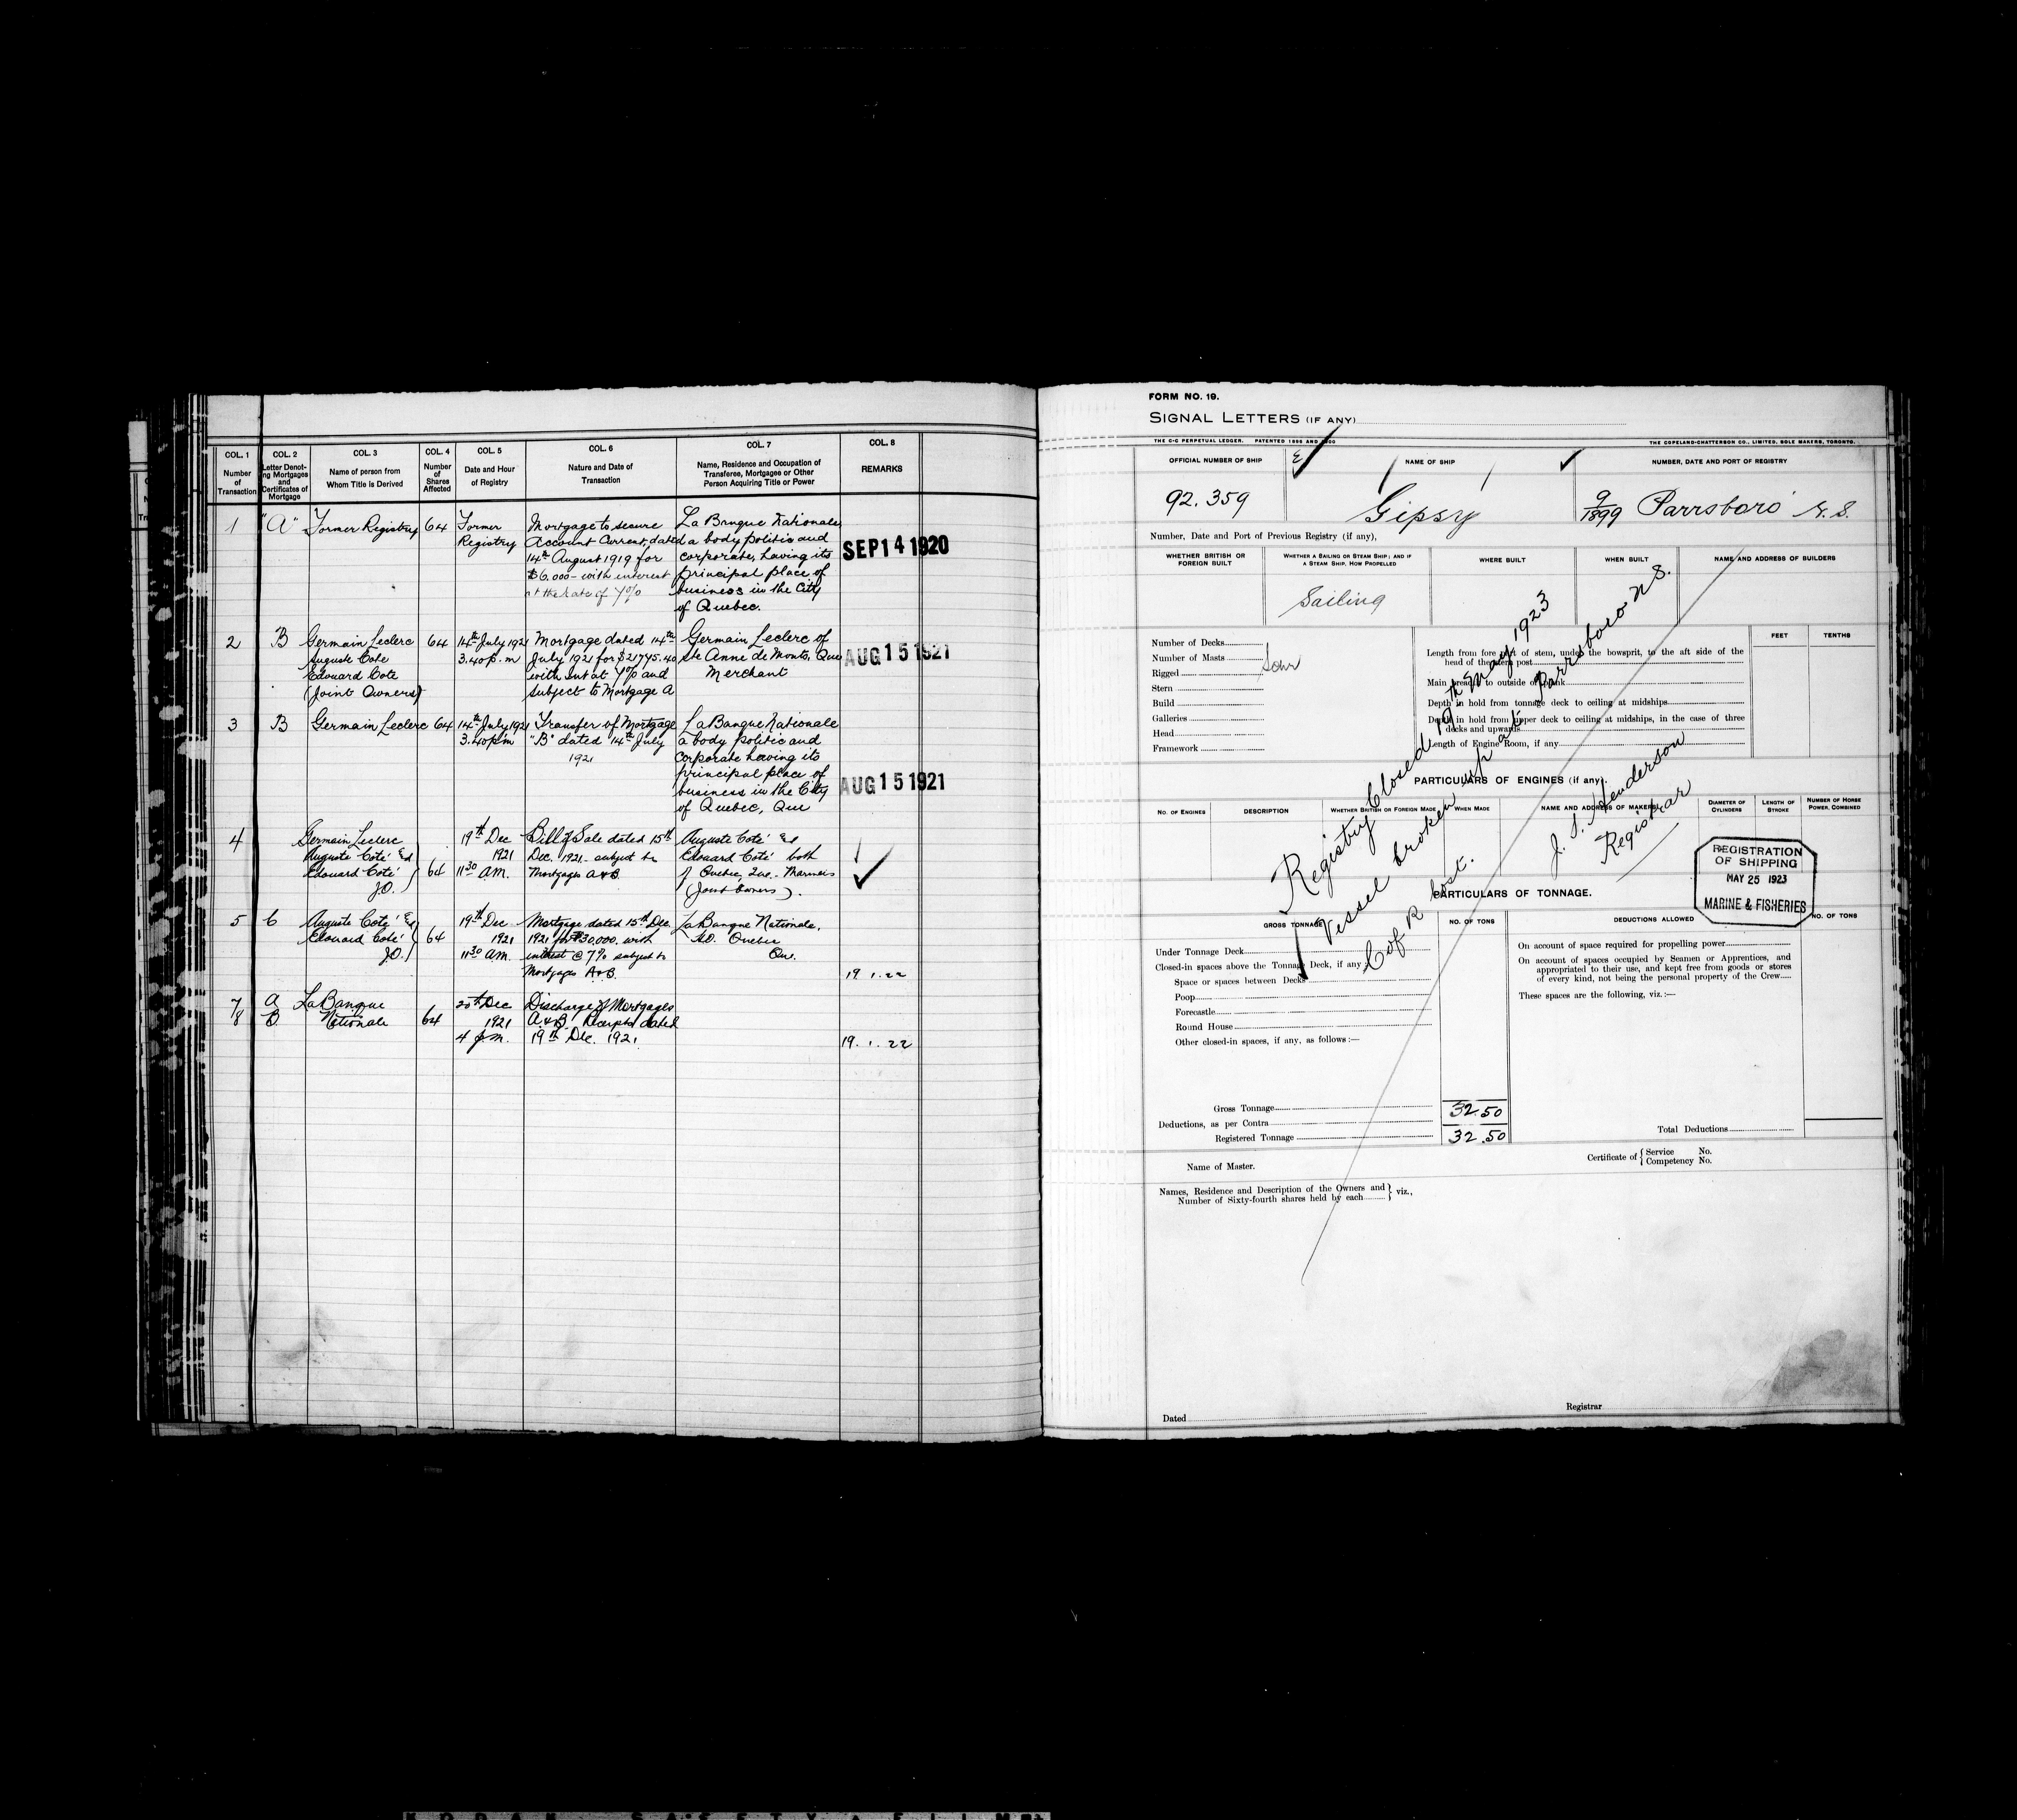 COL. 1
Number of Transaction
COL. 2
Letter Denoting Mortgages and Certificates of Mortgage
COL. 3
Name of person from Whom Title is Derived
COL. 4
Number of Shares Affected
COL. 5
Date and Hour of Registry
COL. 6
Nature and Date of Transaction
COL. 7
Name, Residence and Occupation of Transferee, Mortgagee or Other Person Acquiring Title or Power
COL. 8
REMARKS
1
"A"
Former Registry
64
Former
Registry
Mortgage to secure
Account Current, dated
14th August 1919 for
$6.000 - with interest
at the rate of 7%
La Banque Nationale
a body politic and
corporate, having its
principal place of
business in the City
of Quebec.
SEP 14 1920
2
B
Germain Leclerc
Auguste Cote
Edouard Cote
(Joint Owners)
64
14th July 1921
3.40 p.m
Mortgage dated 14th
July 1921 for $21745.40
with Int at 7% and
subject to Mortgage A
Germain Leclerc of
Ste Anne de Monts, Que
Merchant
AUG 15 1921
3
B
Germain Leclerc
64
14th July 1921
3.40 p.m
Transfer of Mortgage
"B" dated 14th July
1921
La Banque Nationale
a body politic and
corporate having its
principal place of
business in the City
of Quebec, Que
AUG 15 1921
4
Germain Leclerc
Auguste Coté &
Edouard Coté
J.O.
64
19th Dec
1921
11 30 A.M.
Bill of Sale dated 15th
Dec. 1921. subject to
Mortgages A & B.
Auguste Coté &
Edouard Coté both
of Quebec, Que. Mariners
(Joint Owners).
5
C
Auguste Coté &
Edouard Coté
J.O.
64
19th Dec
1921
11 30 A.M.
Mortgage dated 15th Dec.
1921 for $30,000. with
interest @ 7% subject to
Mortgages A & B.
La Banque Nationale,
H.O. Quebec
Que.
19 1.22
7
8
A
B.
La Banque
Nationale
64
20th Dec
1921
4 pm.
Discharge of Mortgages
A & B. Receipts dated
19th Dec. 1921.
19.1.22
FORM NO. 19.
SIGNAL LETTERS (IF ANY)
THE C-C PERPETUAL LEDGER. PATENTED 1896 AND
THE COPELAND-CHATTERSON CO., LIMITED, SOLE MAKERS, TORONTO.
OFFICIAL NUMBER OF SHIP
NAME OF SHIP
NUMBER, DATE AND PORT OF REGISTRY
92.359
Gipsy
9/1899 Parrsboro' N.S.
Number, Date and Port of Previous Registry (if any),
WHETHER BRITISH OR FOREIGN BUILT
WHETHER A SAILING OR STEAM SHIP; AND IF A STEAM SHIP, HOW PROPELLED
WHERE BUILT
WHEN BUILT
NAME AND ADDRESS OF BUILDERS
Sailing
Number of Decks
Number of Masts
Rigged
Schr
Stern
Build
Galleries
Head
Framework
FEET
TENTHS
Length from fore part of stem, under the bowsprit, to the aft side of the
head of the stern post
Main breadth to outside of plank
Depth in hold from tonnage deck to ceiling at midships
Depth in hold from upper deck to ceiling at midships, in the case of three
decks and upwards
Length of Engine Room, if any
PARTICULARS OF ENGINES (if any).
NO. OF ENGINES
DESCRIPTION
WHETHER BRITISH OR FOREIGN MADE
WHEN MADE
NAME AND ADDRESS OF MAKERS
DIAMETER OF CYLINDERS
LENGTH OF STROKE
NUMBER OF HORSE POWER, COMBINED
Registry Closed 19th May 1923
Vessel broken up at Parrsboro N.S.
C of R Lost.
J. S. Henderson
Registrar
REGISTRATION
OF SHIPPING
MAY 25 1923
MARINE & FISHERIES
PARTICULARS OF TONNAGE.
GROSS TONNAGE
NO. OF TONS
DEDUCTIONS ALLOWED
NO. OF TONS
Under Tonnage Deck
Closed-in spaces above the Tonnage Deck, if any
Space or spaces between Decks
Poop
Forecastle
Round House
Other closed-in spaces, if any, as follows :—
On account of space required for propelling power
On account of spaces occupied by Seamen or Apprentices, and
appropriated to their use, and kept free from goods or stores
of every kind, not being the personal property of the Crew
These spaces are the following, viz. :—
Gross Tonnage 32.50
Deductions, as per Contra
Registered Tonnage 32.50
Total Deductions
Name of Master.
Certificate of { Service No.
Competency No.
Names, Residence and Description of the Owners and
Number of Sixty-fourth shares held by each } viz.,
Dated
Registrar